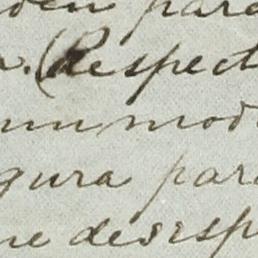 den para
. (Respect
un mod
gura para
ne desesp